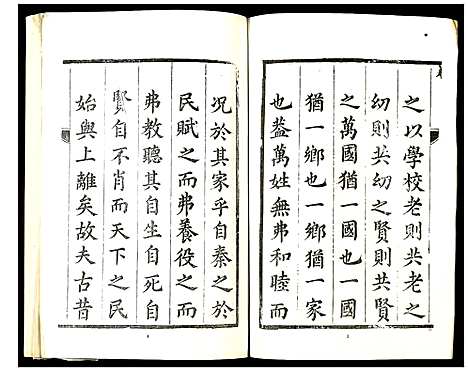 之以學校老則共老之
幼則共幼之賢則共賢
之萬國猶一國也一國
猶一鄉也一鄉猶一家
也葢萬姓無弗和睦而
況於其家乎自秦之於
民賦之而弗養役之而
弗教聽其自生自死自
賢自不肖而天下之民
始與上離矣故夫古昔